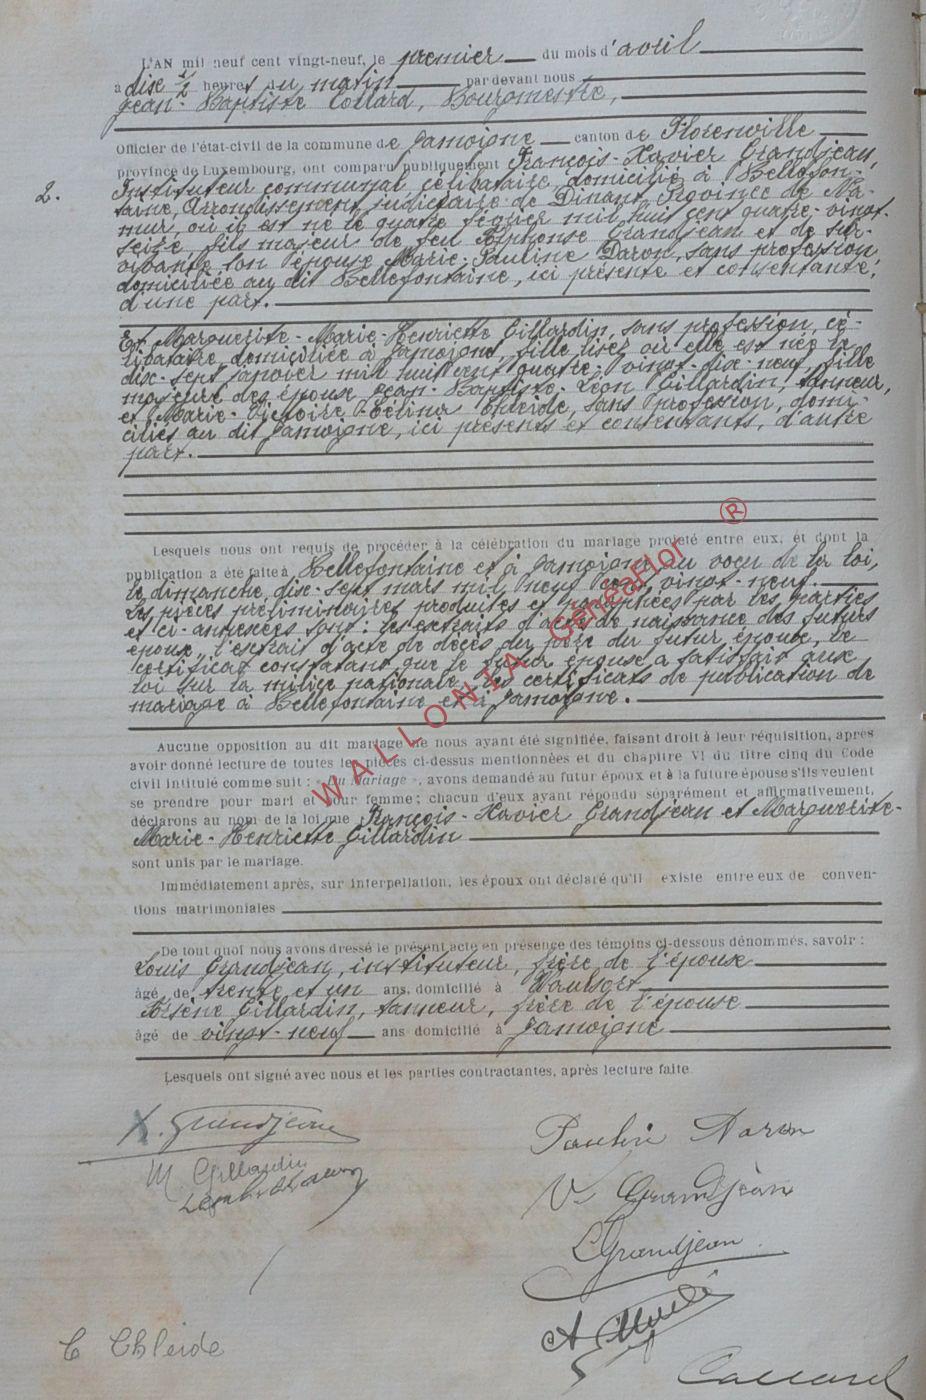 L'AN mil neuf cent vingt-neuf, le premier du mois d'avril
à dix ½ heures du matin par devant nous
Jean-Baptiste Collard, Bourgmestre,
Officier de l'état-civil de la commune de Jamoigne canton de Florenville
province de Luxembourg, ont comparu publiquement François-Xavier Grandjean,
2. Instituteur communal, célibataire, domicilié à Bellefon-
taine, Arrondissement judiciaire de Dinant, Province de Na-
mur, où il est né le quatre février mil huit cent quatre-vingt-
seize, fils majeur de feu Alphonse Grandjean et de sur-
vivante son épouse Marie-Pauline Daron, sans profession,
domiciliée au dit Bellefontaine, ici présente et consentante,
d'une part.
Et Marguerite-Marie-Henriette Gillardin, sans profession, cé-
libataire, domiciliée à Jamoigne, où elle est née le
dix-sept janvier mil huit cent quatre-vingt-dix-neuf, fille
majeure des époux Jean-Baptiste-Léon Gillardin, tanneur,
et Marie-Victoire-Célina Thleide, sans profession, domi-
ciliés au dit Jamoigne, ici présents et consentants, d'autre
part.
Lesquels nous ont requis de procéder à la célébration du mariage projeté entre eux, et dont la
publication a été faite à Bellefontaine et à Jamoigne, au vœu de la loi,
le dimanche, dix-sept mars mil neuf cent vingt-neuf.
Les pièces préliminaires produites et paraphées par les parties
et ci-annexées sont: les extraits d'acte de naissance des futurs
époux, l'extrait d'acte de décès du père du futur époux, le
certificat constatant que le futur époux a satisfait aux
loi sur la milice nationale, les certificats de publication de
mariage à Bellefontaine et à Jamoigne.
Aucune opposition au dit mariage ne nous ayant été signifiée, faisant droit à leur réquisition, après
avoir donné lecture de toutes les pièces ci-dessus mentionnées et du chapitre VI du titre cinq du Code
civil intitulé comme suit : « Du Mariage », avons demandé au futur époux et à la future épouse s'ils veulent
se prendre pour mari et pour femme; chacun d'eux ayant répondu séparément et affirmativement,
déclarons au nom de la loi que François-Xavier Grandjean et Marguerite-
Marie-Henriette Gillardin
sont unis par le mariage.
Immédiatement après, sur interpellation, les époux ont déclaré qu'il existe entre eux de conven-
tions matrimoniales
De tout quoi nous avons dressé le présent acte en présence des témoins ci-dessous dénommés, savoir :
Louis Grandjean, instituteur, frère de l'époux
âgé de trente et un ans, domicilié à Waulsort
Arsène Gillardin, tanneur, frère de l'épouse
âgé de vingt-neuf ans domicilié à Jamoigne
Lesquels ont signé avec nous et les parties contractantes, après lecture faite.
X. Grandjean
Pauline Daron
M. Gillardin
V Grandjean
L Grandjean
C Thleide
Collard
WALLONIA GeneaFlor ®